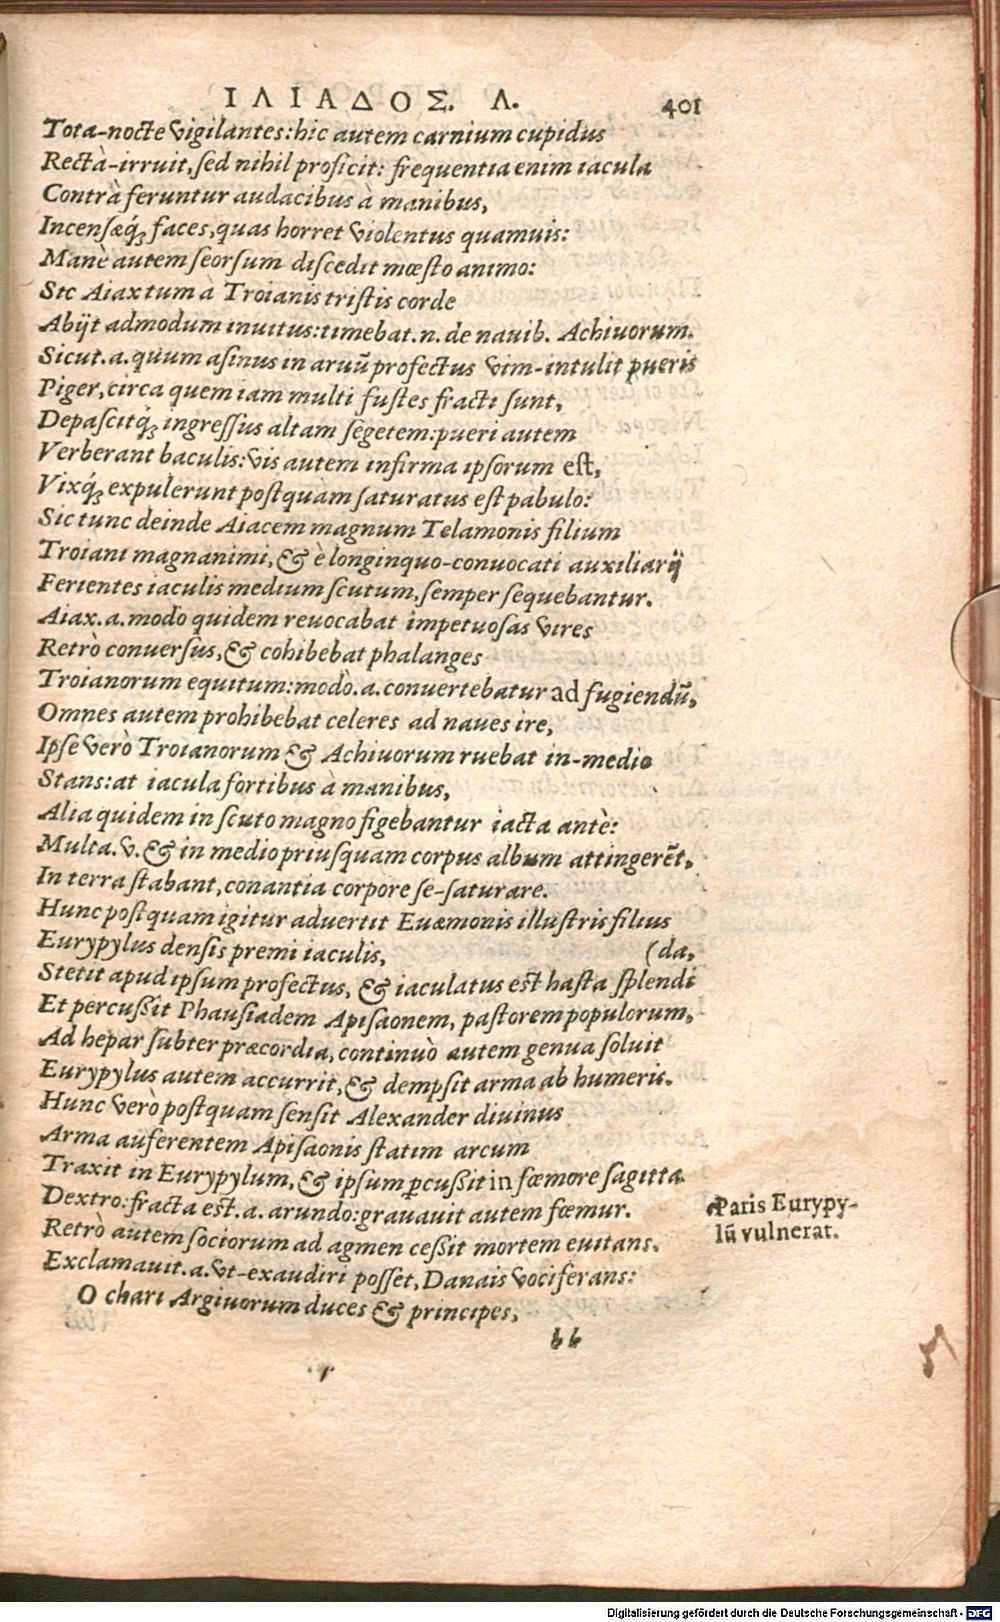 ΙΛΙΑΔΟΣ. Λ. 401
Tota-nocte vigilantes: hic autem carnium cupidus
Rectà-irruit, sed nihil proficit: frequentia enim iacula
Contrà feruntur audacibus à manibus,
Incensæq́; faces, quas horret violentus quamuis:
Manè autem seorsum discedit mœsto animo:
Sic Aiax tum à Troianis tristis corde
Abijt admodum inuitus: timebat .n. de nauib. Achiuorum.
Sicut .a. quum asinus in aruū profectus vim-intulit pueris
Piger, circa quem iam multi fustes fracti sunt,
Depascitq́; ingressus altam segetem: pueri autem
Verberant baculis: vis autem infirma ipsorum est,
Vixq́; expulerunt postquam saturatus est pabulo:
Sic tunc deinde Aiacem magnum Telamonis filium
Troiani magnanimi, & è longinquo-conuocati auxiliarij
Ferientes iaculis medium scutum, semper sequebantur.
Aiax .a. modo quidem reuocabat impetuosas vires
Retrò conuersus, & cohibebat phalanges
Troianorum equitum: modò .a. conuertebatur ad fugiendū,
Omnes autem prohibebat celeres ad naues ire,
Ipse verò Troianorum & Achiuorum ruebat in-medio
Stans: at iacula fortibus à manibus,
Alia quidem in scuto magno figebantur iacta antè:
Multa .v. & in medio priusquam corpus album attingerēt,
In terra stabant, conantia corpore se-saturare.
Hunc postquam igitur aduertit Euæmonis illustris filius
Eurypylus densis premi iaculis, (da,
Stetit apud ipsum profectus, & iaculatus est hasta splendi
Et percußit Phausiadem Apisaonem, pastorem populorum,
Ad hepar subter præcordia, continuò autem genua soluit
Eurypylus autem accurrit, & dempsit arma ab humeris.
Hunc verò postquam sensit Alexander diuinus
Arma auferentem Apisaonis statim arcum
Traxit in Eurypylum, & ipsum ꝑcußit in fœmore sagitta
Dextro: fracta est .a. arundo: grauauit autem fœmur.
Retrò autem sociorum ad agmen ceßit mortem euitans.
Exclamauit .a. vt-exaudiri posset, Danais vociferans:
O chari Argiuorum duces & principes,
bb
Paris Eurypy-
lū vulnerat.
Digitalisierung gefördert durch die Deutsche Forschungsgemeinschaft - DFG